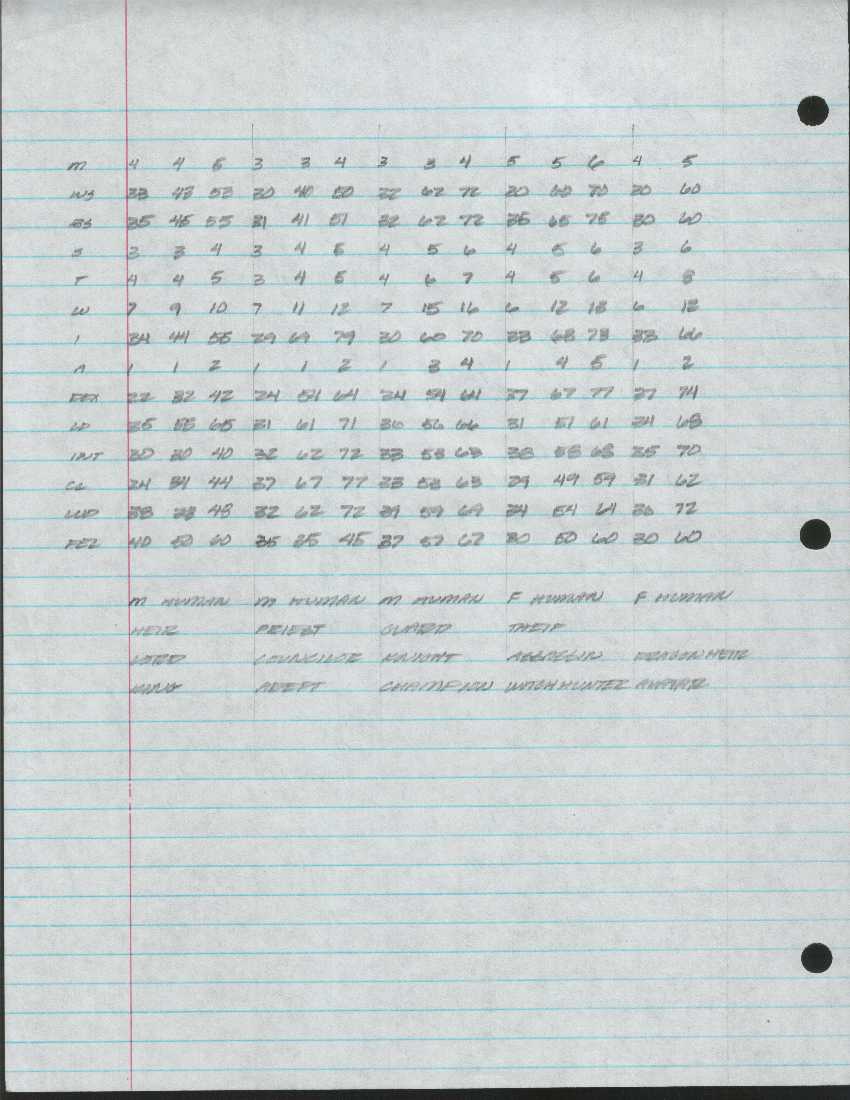 M 4 4 5 3 3 4 3 3 4 5 5 6 4 5
WS 33 43 53 30 40 50 32 62 72 30 60 70 30 60
BS 35 45 55 31 41 51 32 62 72 35 65 75 30 60
S 3 3 4 3 4 5 4 5 6 4 5 6 3 6
T 4 4 5 3 4 5 4 6 7 4 5 6 4 8
W 7 9 10 7 11 12 7 15 16 6 12 13 6 12
I 34 44 55 29 69 79 30 60 70 33 68 78 33 66
A 1 1 2 1 1 2 1 3 4 1 4 5 1 2
DEX 22 32 42 24 54 64 24 54 64 37 67 77 37 74
LD 35 55 65 31 61 71 36 56 66 31 51 61 34 68
INT 30 30 40 32 62 72 33 53 63 38 58 68 35 70
CL 34 34 44 37 67 77 33 53 63 29 49 59 31 62
WP 38 38 48 32 62 72 39 59 69 34 54 64 36 72
FEL 40 50 60 35 35 45 37 57 67 30 50 60 30 60
M HUMAN M HUMAN M HUMAN F HUMAN F HUMAN
HEIR PRIEST GUARD THEIF
LORD COUNCILOR KNIGHT ASSASSIN DRAGON HEIR
KING ADEPT CHAMPION WITCH HUNTER AVATAR